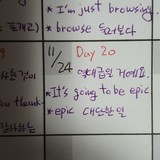 * I'm just browsing.
* browse 둘러보다
11/24
Day 20
역대급일 거예요.
* It's going to be epic.
* epic 대단한일